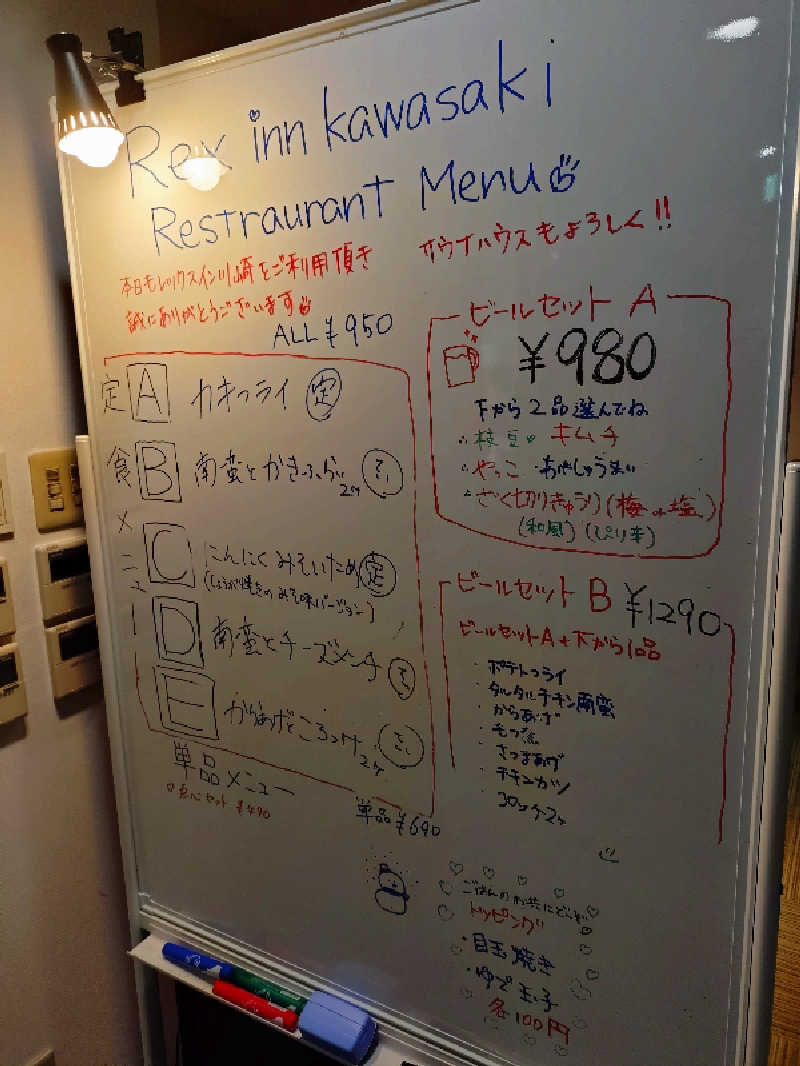 Rex inn kawasaki
Restraurant Menu
サウナハウスもよろしく!!
本日もレックスイン川崎をご利用頂き
誠にありがとうございます
ALL ¥950
定食メニュー
A カキフライ 定
B 南蛮とかきふらい2ケ
C にんにくみそいため 定
(しょうが焼きのみそ味バージョン)
D 南蛮とチーズメンチ
E からあげところっけ2ケ
単品¥690
単品メニュー
点心セット ¥490
ビールセット A
¥980
下から2品選んでね
・枝豆 ・キムチ
・やっこ ・おやしゅうまい
・ざく切りきゅうり(梅・塩)
(和風)(ぴり辛)
ビールセット B ¥1290
ビールセットA+下から1品
・ポテトフライ
・タルタルチキン南蛮
・からあげ
・モツ煮
・さつまあげ
・チキンカツ
・コロッケ2ケ
ごはんのお共にどうぞ
トッピング
・目玉焼き
・ゆで玉子
各100円